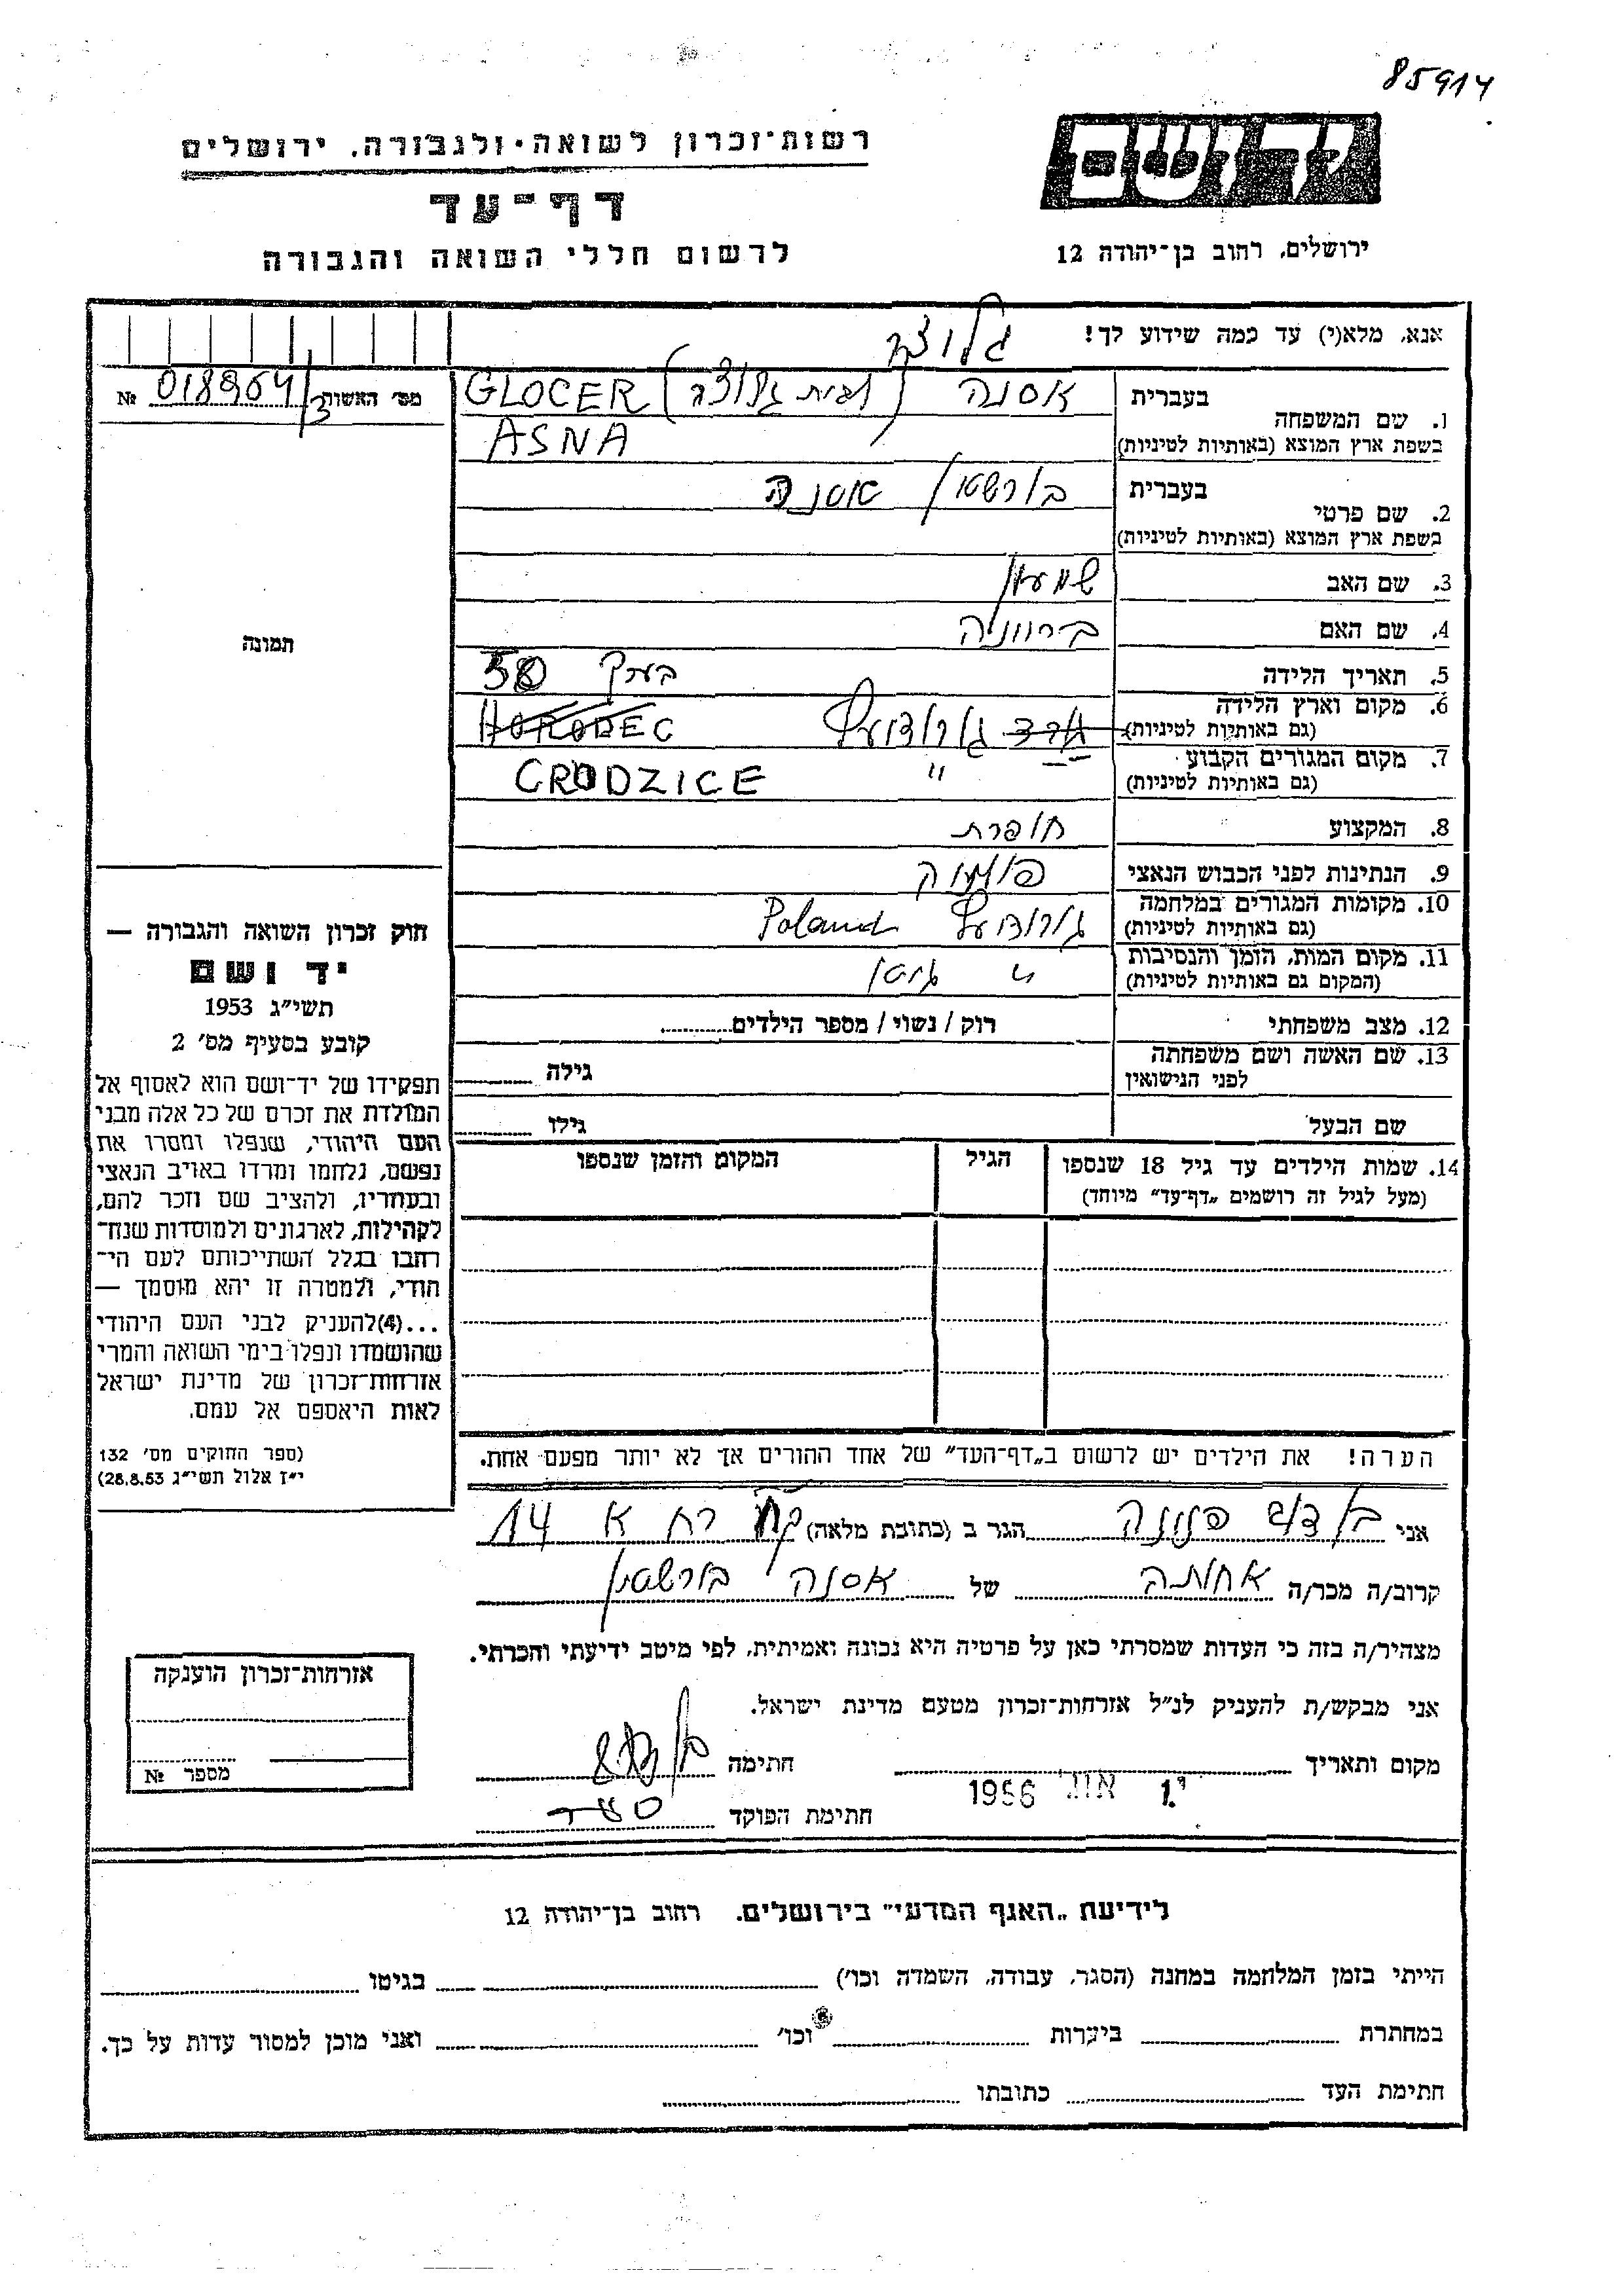 85914
רשות־זכרון לשואה ולגבורה, ירושלים
יד ושם
דף־עד
לרשום חללי השואה והגבורה
ירושלים, רחוב בן־יהודה 12
אנא, מלא(י) עד כמה שידוע לך!
גלוצר
מס׳ האשות № 018964/3
1. שם המשפחה
בעברית אסנה (בית גלוצר) GLOCER
בשפת ארץ המוצא (באותיות לטיניות) ASNA
2. שם פרטי
בעברית בורשטיין אסנה
בשפת ארץ המוצא (באותיות לטיניות)
3. שם האב שמעון
4. שם האם
תמונה
5. תאריך הלידה בערך 58
6. מקום וארץ הלידה
(גם באותיות לטיניות) HORODEC
7. מקום המגורים הקבוע "
(גם באותיות לטיניות) GRODZICE
8. המקצוע תופרת
9. הנתינות לפני הכבוש הנאצי
10. מקומות המגורים במלחמה
(גם באותיות לטיניות) Poland
11. מקום המות, הזמן והנסיבות
(המקום גם באותיות לטיניות) " גיטו
12. מצב משפחתי רוק / נשוי / מספר הילדים
13. שם האשה ושם משפחתה
לפני הנישואין גילה
שם הבעל גילו
14. שמות הילדים עד גיל 18 שנספו הגיל המקום והזמן שנספו
(מעל לגיל זה רושמים „דף־עד" מיוחד)
הערה! את הילדים יש לרשום ב„דף־העד" של אחד ההורים אך לא יותר מפעם אחת.
חוק זכרון השואה והגבורה —
יד ושם
תשי״ג 1953
קובע בסעיף מס׳ 2
תפקידו של יד־ושם הוא לאסוף אל
המולדת את זכרם של כל אלה מבני
העם היהודי, שנפלו ומסרו את
נפשם, נלחמו ומרדו באויב הנאצי
ובעוזריו, ולהציב שם וזכר להם,
לקהילות, לארגונים ולמוסדות שנח־
רחבו בגלל השתייכותם לעם הי־
הודי, ולמטרה זו יהא מוסמך —
...(4)להעניק לבני העם היהודי
שהושמדו ונפלו בימי השואה והמרי
אזרחות־זכרון של מדינת ישראל
לאות היאספם אל עמם.
(ספר החוקים מס׳ 132
י״ז אלול תשי״ג 28.8.53)
אני פנינה הגר ב (כתובת מלאה) רח א 14
קרוב/ה מכר/ה אחותה של אסנה בורשטיין
מצהיר/ה בזה כי העדות שמסרתי כאן על פרטיה היא נכונה ואמיתית, לפי מיטב ידיעתי והכרתי.
אני מבקש/ת להעניק לנ״ל אזרחות־זכרון מטעם מדינת ישראל.
מקום ותאריך חתימה
1956
חתימת הפוקד
אזרחות־זכרון הוענקה
מספר №
לידיעת „האגף המדעי" בירושלים. רחוב בן־יהודה 12
הייתי בזמן המלחמה במחנה (הסגר, עבודה, השמדה וכו׳) בגיטו
במחתרת ביערות וכו׳ ואני מוכן למסור עדות על כך.
חתימת העד כתובתו